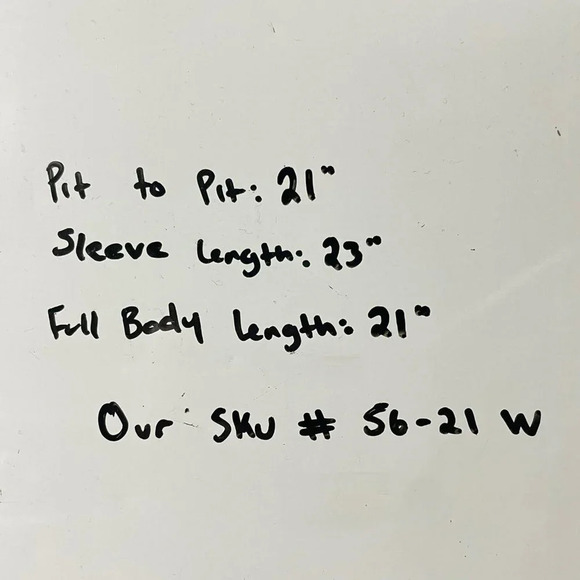 Pit to Pit: 21"
Sleeve Length: 23"
Full Body Length: 21"
Our SKU # 56-21 W